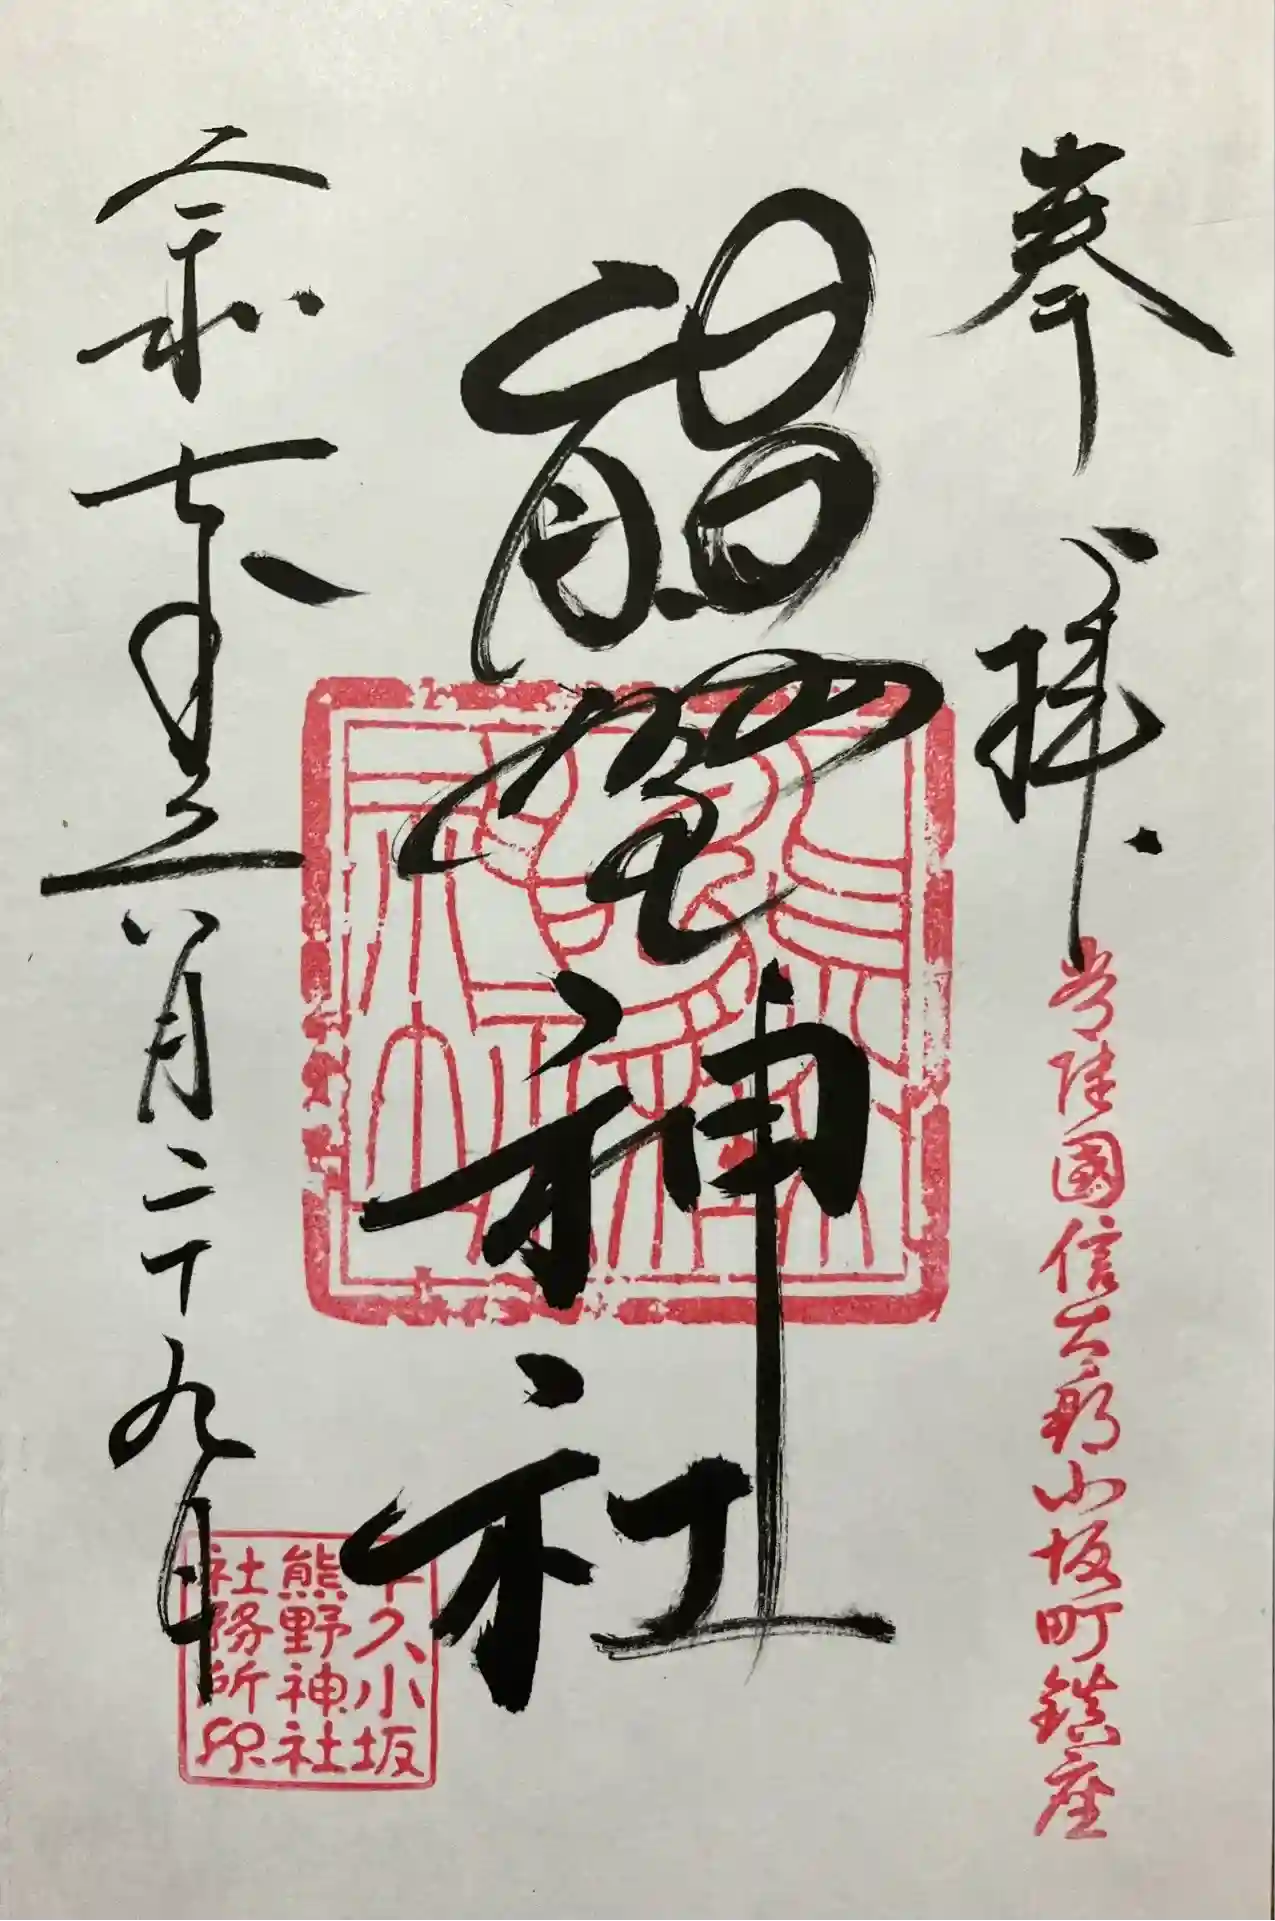 奉拝
常陸國信太郡小坂町鎮座
熊野神社
令和七年八月二十九日
牛久小坂
熊野神社
社務所印